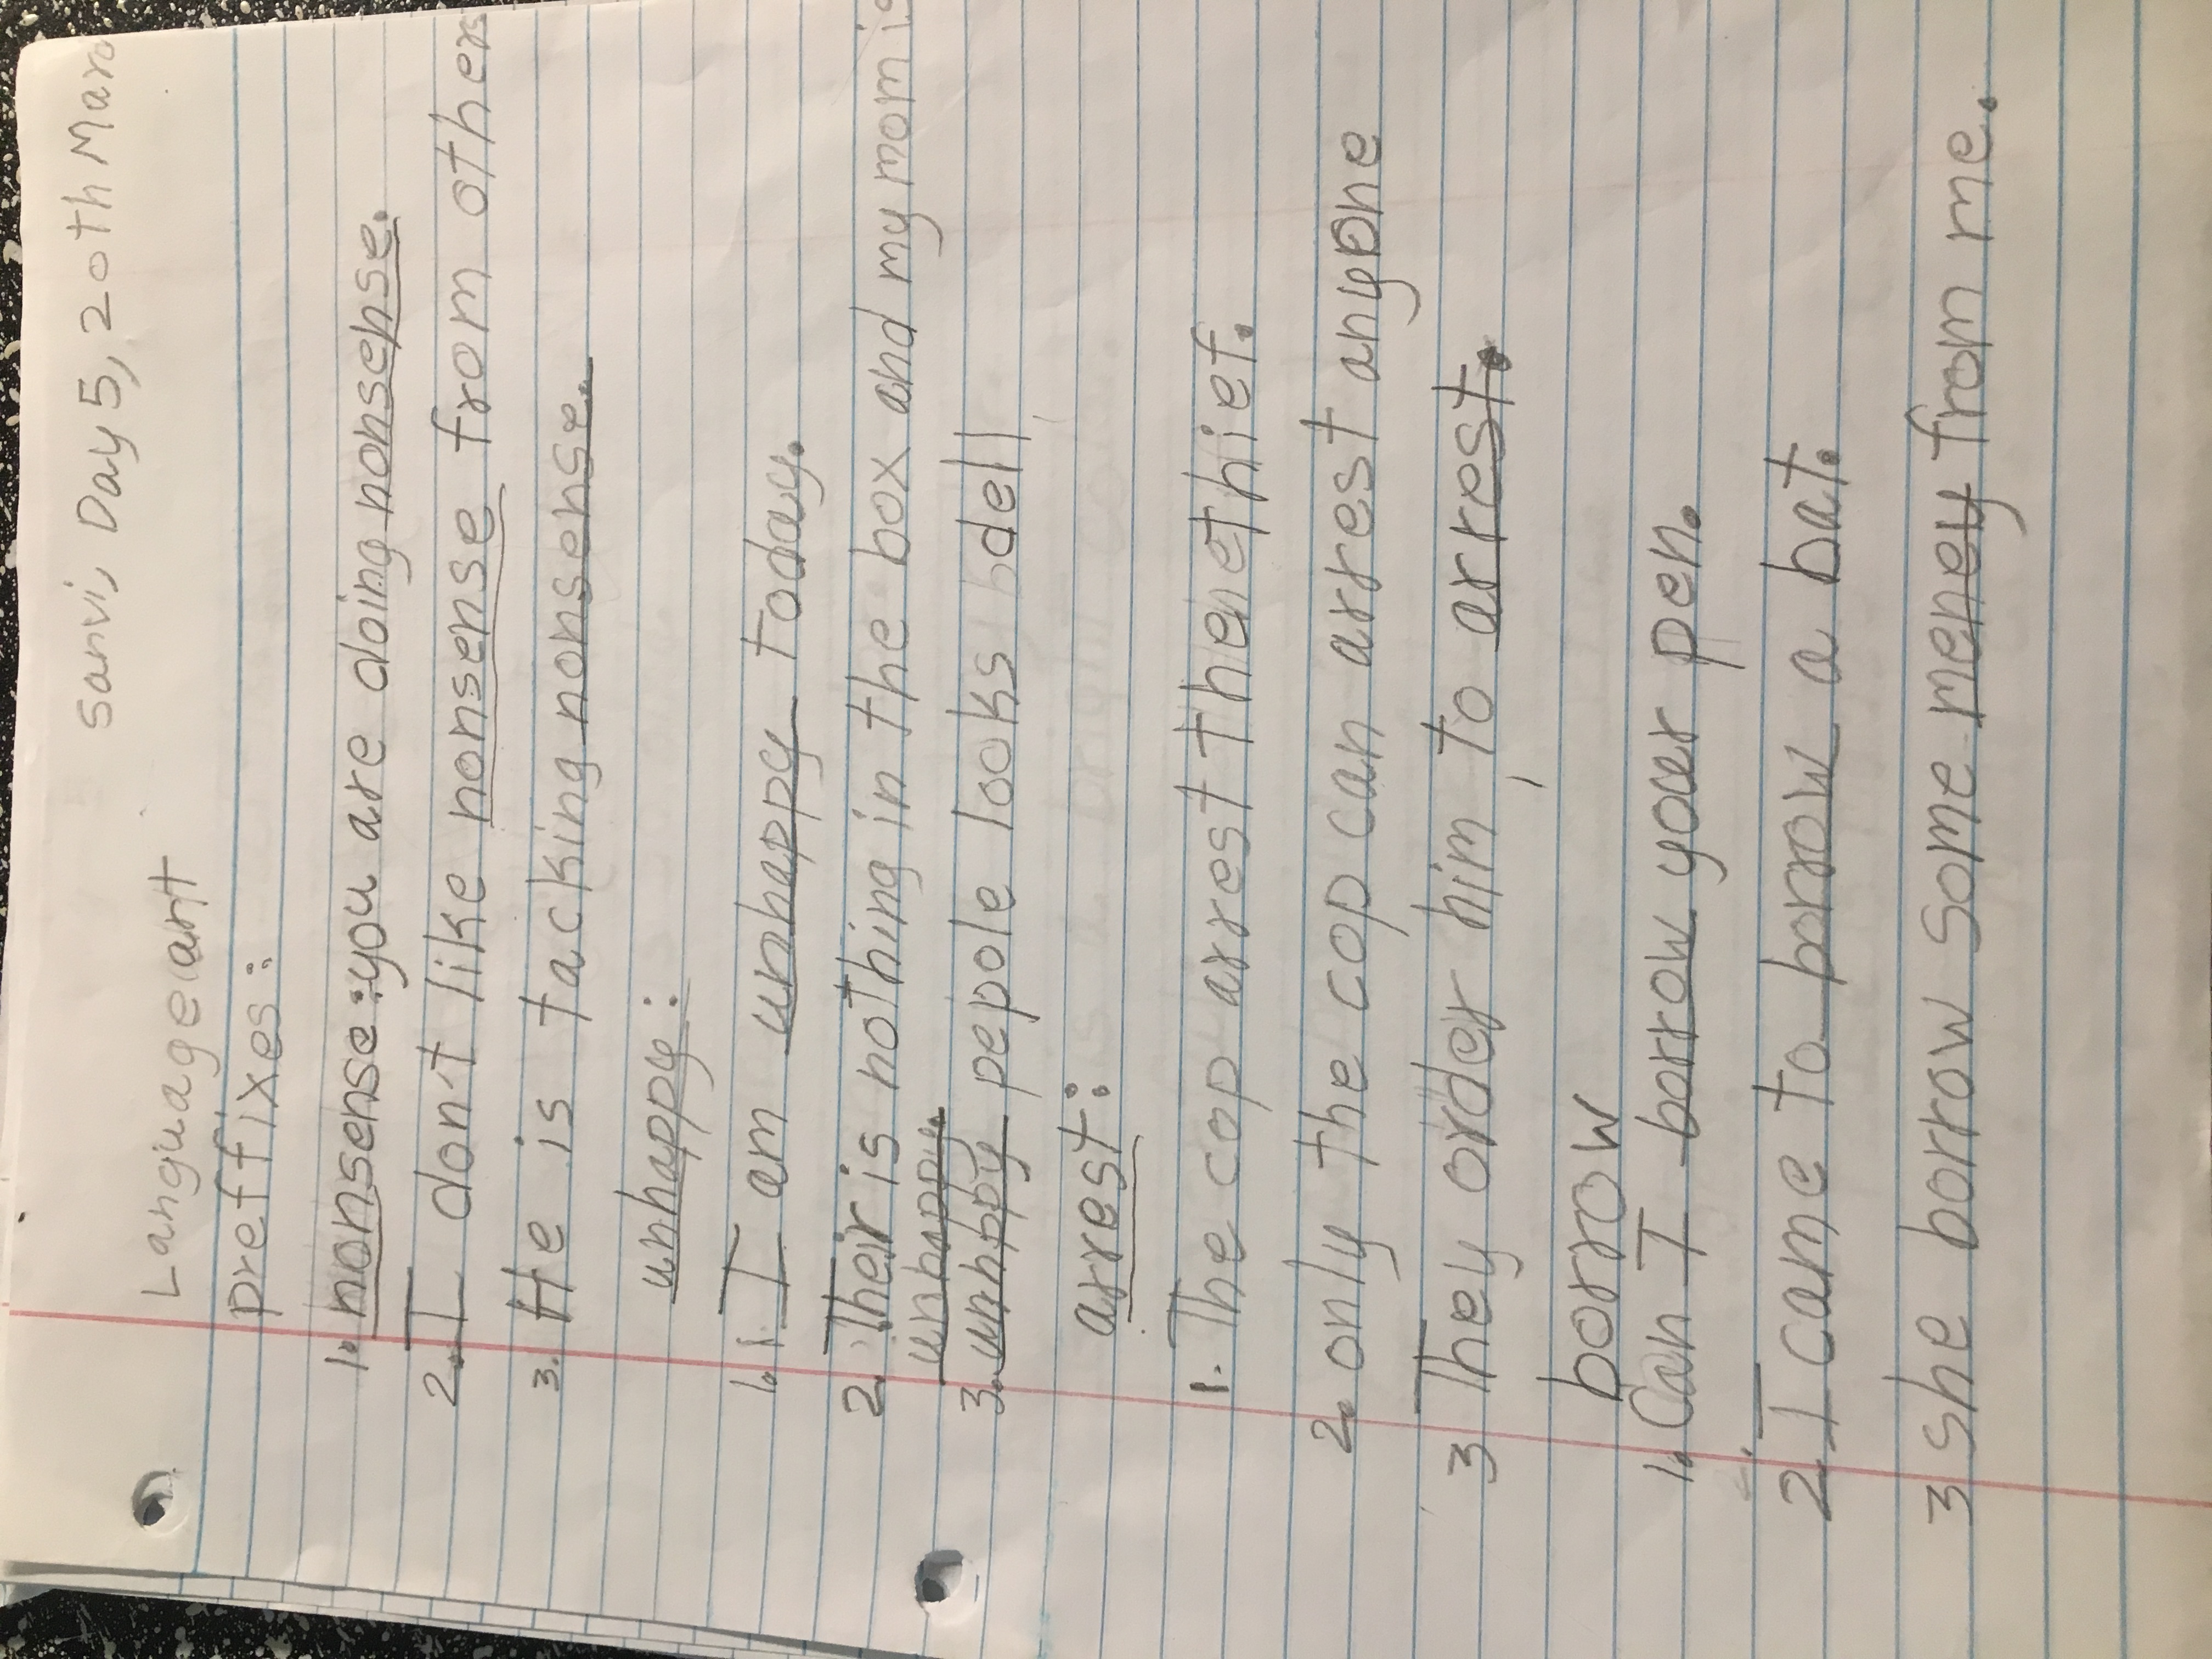 Sanvi, Day 5, 20th Marc
Language art
preffixes:
1. nonsense: you are doing nonsense.
2. I don't like nonsense from others
3. He is tacking nonsense.
unhappy:
1. 1. I am unhappy today.
2. Their is nothing in the box and my mom is
unhappy.
3. unhppy pepole looks dell
arrest:
1. The cop arrest the thief.
2. only the cop can arrest anyone
3 They order him to arrest.
borrow
1. Can I borrow your pen.
2. I came to borrow a bat.
3 she borrow some meney from me.